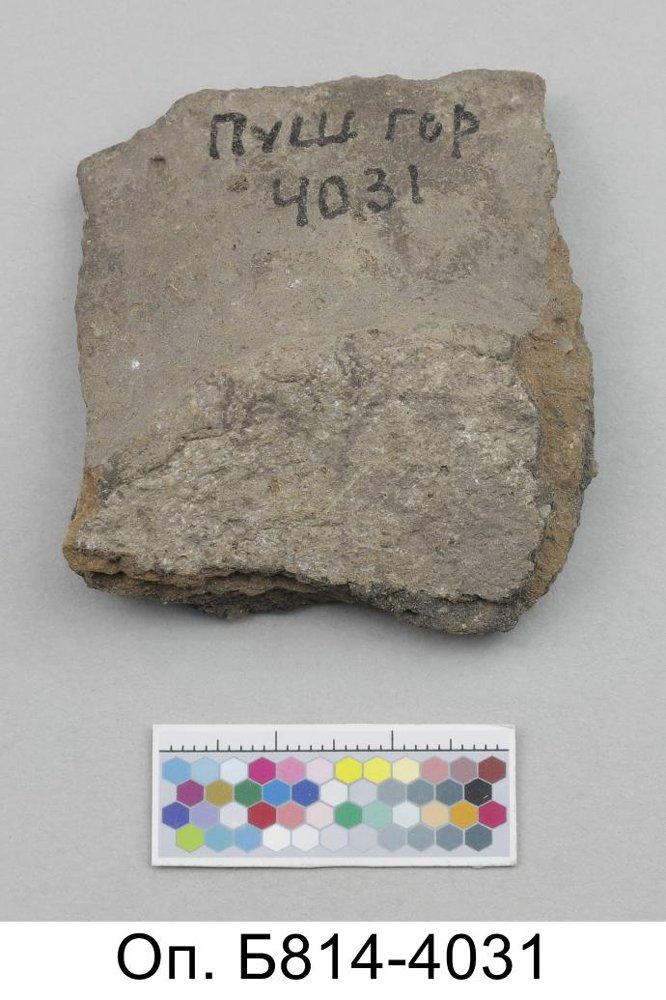 Пуш гор
4031
Оп. Б814-4031